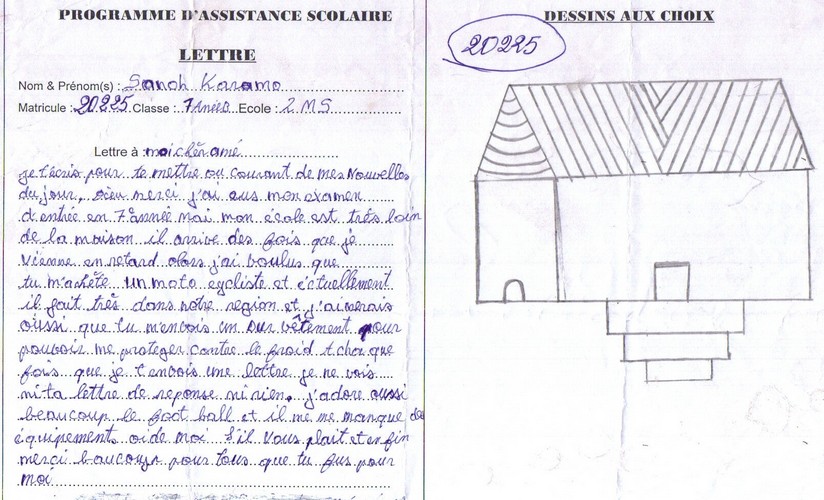 PROGRAMME D'ASSISTANCE SCOLAIRE
LETTRE
Nom & Prénom(s) : Sanoh Karamo
Matricule : 20225 Classe : 7 Années Ecole : 2 MS
Lettre à moi chèr amé
je t'écris pour te mettre ou courant de mes Nouvelles
du jour, Dieu merci j'ai eus mon examen
d'entrée en 7 année mai mon école est très loin
de la maison il arrive des fois que je
vienne en retard alors j'ai voulus que
tu m'achète un moto egcliste et ectuellement
il fait très dans notre region et j'aimerais
aussi que tu m'envois un vêtement pour
pouvoir me proteger contre le froid t chaque
fois que je t'envois une lettre je ne vois
ni ta lettre de reponse ni rien, j'adore aussi
beaucoup le foot ball et il me me manque des
équipements aide moi s'il vous plait et en fin
merci beaucoup pour tous que tu fus pour
moi
DESSINS AUX CHOIX
20225